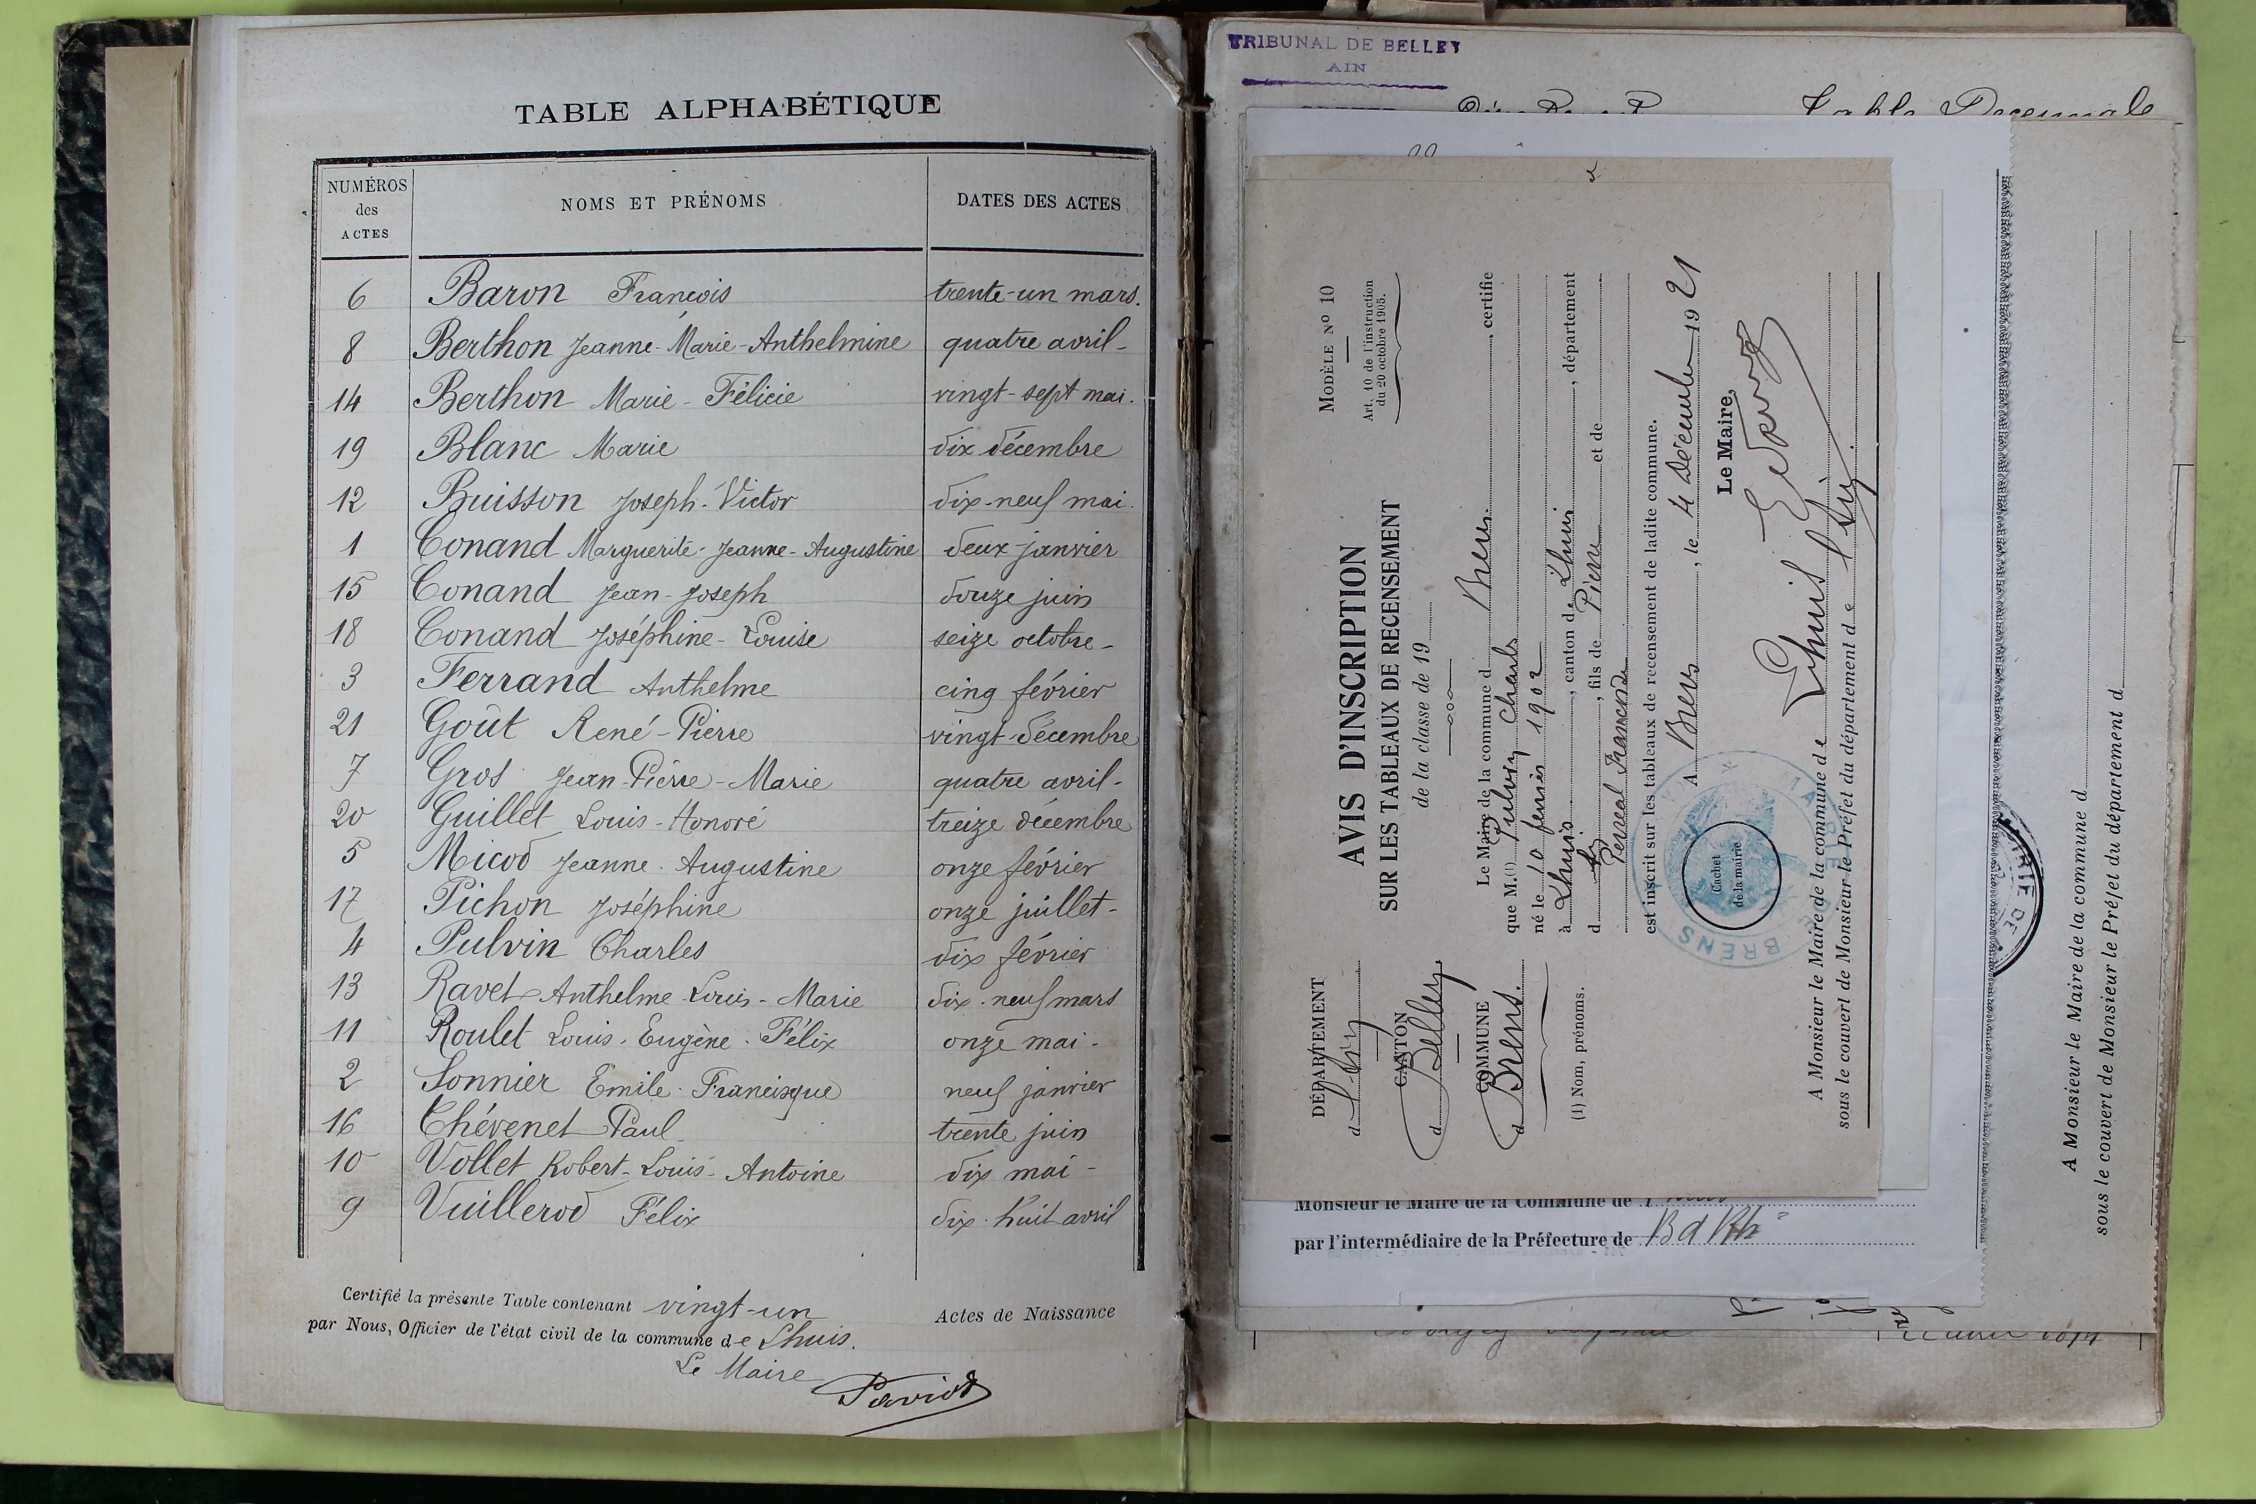 TABLE ALPHABÉTIQUE
NUMÉROS des ACTES
NOMS ET PRÉNOMS
DATES DES ACTES
6 Baron François trente-un mars.
8 Berthon Jeanne-Marie-Anthelmine quatre avril-
14 Berthon Marie-Félicie vingt-sept mai.
19 Blanc Marie dix décembre
12 Buisson Joseph-Victor dix-neuf mai.
1 Conand Marguerite-Jeanne-Augustine deux janvier
15 Conand Jean-Joseph douze juin
18 Conand Joséphine-Louise seize octobre-
3 Ferrand Anthelme cinq février
21 Goût René-Pierre vingt-décembre
7 Gros Jean-Pierre-Marie quatre avril-
20 Guillet Louis-Honoré treize décembre
5 Micod Jeanne-Augustine onze février
17 Pichon Joséphine onze juillet-
4 Pulvin Charles dix février
13 Ravet Anthelme-Louis-Marie dix-neuf mars
11 Roulet Louis-Eugène-Félix onze mai-
2 Sonnier Emile-Francisque neuf janvier
16 Thévenet Paul trente juin
10 Vollet Robert-Louis-Antoine dix mai-
9 Vuillerod Félix dix-huit avril
Certifié la présente Table contenant vingt-un Actes de Naissance
par Nous, Officier de l'état civil de la commune de Lhuis.
Le Maire
Paviot
TRIBUNAL DE BELLEY
AIN
Table Decennale
DÉPARTEMENT
d l'Ain
CANTON
d Belley
COMMUNE
d Brens.
(1) Nom, prénoms.
MODÈLE No 10
Art. 10 de l'instruction
du 20 octobre 1905.
AVIS D'INSCRIPTION
SUR LES TABLEAUX DE RECENSEMENT
de la classe de 19
Le Maire de la commune d Brens, certifie
que M.(1) Pulvin Charles
né le 10 fevrier 1902
à Lhuis, canton de Lhuis, département
d , fils de Pierre et de
Perreal Francende
est inscrit sur les tableaux de recensement de ladite commune.
A Brens, le 4 Décembre 1921
Le Maire,
Cachet
de la mairie
MAIRIE DE BRENS
A Monsieur le Maire de la commune de Lhuis
sous le couvert de Monsieur le Préfet du département de l'Ain.
Monsieur le Maire de la Commune de
par l'intermédiaire de la Préfecture de B d Rh
MAIRIE DE
A Monsieur le Maire de la commune d
sous le couvert de Monsieur le Préfet du département d